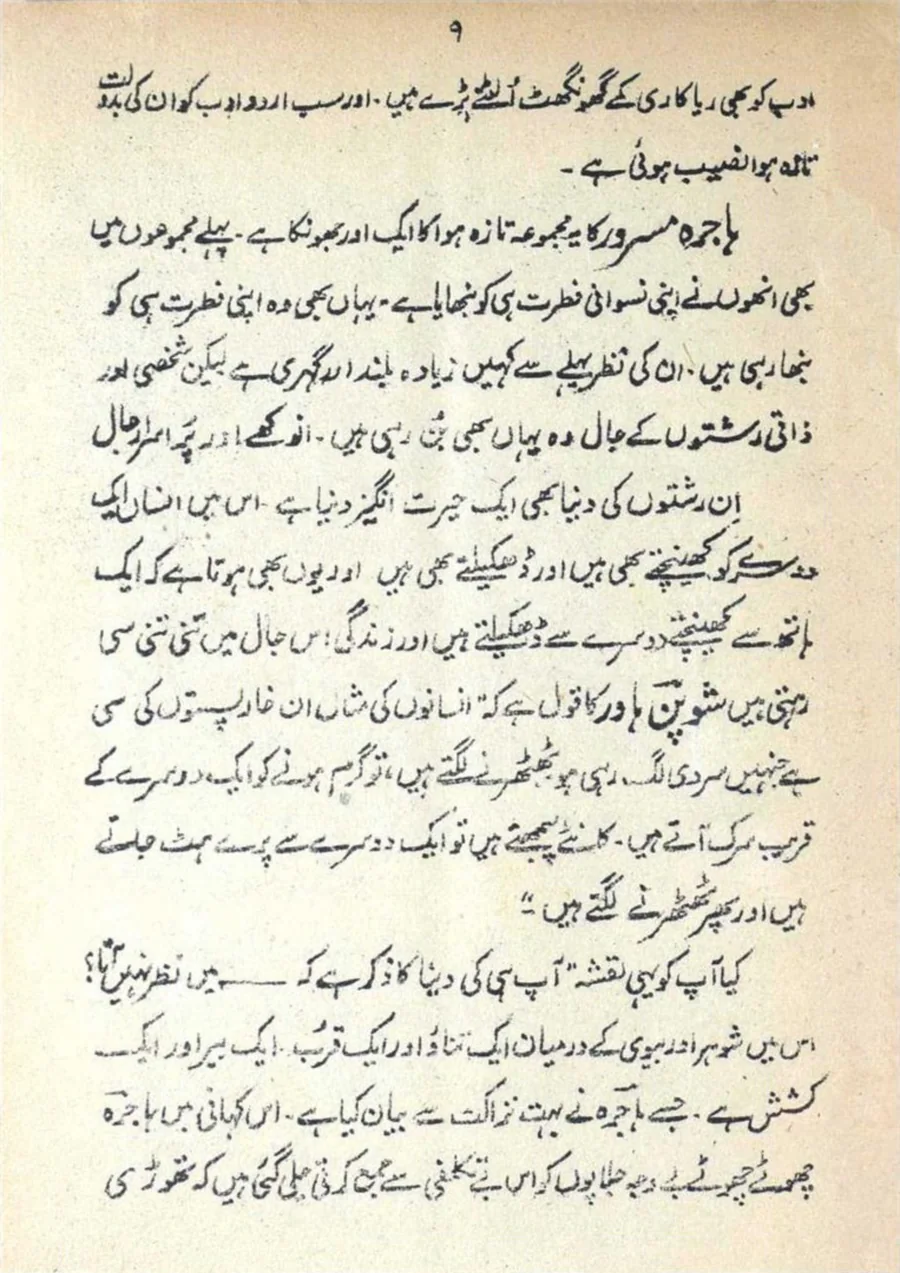 ۹
ادب کو بھی ریاکاری کے گھونگھٹ اُلٹنے پڑے ہیں۔ اور سب اردو ادب کو ان کی بدولت
تازہ ہوا نصیب ہوئی ہے۔
ہاجرہ مسرور کا یہ مجموعہ تازہ ہوا کا ایک اور جھونکا ہے۔ پہلے مجموعوں میں
بھی انھوں نے اپنی نسوانی فطرت ہی کو نبھایا ہے۔ یہاں بھی وہ اپنی فطرت ہی کو
نبھا رہی ہیں۔ ان کی نظر پہلے سے کہیں زیادہ بلند اور گہری ہے لیکن شخصی اور
ذاتی رشتوں کے جال وہ یہاں بھی بُن رہی ہیں۔ انوکھے اور پُر اسرار جال
اِن رشتوں کی دنیا بھی ایک حیرت انگیز دنیا ہے۔ اس میں انسان ایک
دوسرے کو کھینچتے بھی ہیں اور ڈھکیلتے بھی ہیں اور یوں بھی ہوتا ہے کہ ایک
ہاتھ سے کھینچتے دوسرے سے ڈھکیلتے ہیں اور زندگی اس جال میں تنی تنی سی
رہتی ہیں شوپن ہاور کا قول ہے کہ "انسانوں کی مثال ان خارپستوں کی سی
ہے جنہیں سردی لگ رہی ہو ٹھٹھرنے لگتے ہیں، تو گرم ہونے کو ایک دوسرے کے
قریب سرک آتے ہیں۔ کانٹے چبھتے ہیں تو ایک دوسرے سے پرے ہٹ جاتے
ہیں اور پھر ٹھٹھرنے لگتے ہیں۔"
کیا آپ کو یہی نقشہ "آپ ہی کی دینا کا ذکر ہے کہ ——— میں نظر نہیں آتا؟
اس میں شوہر اور بیوی کے درمیان ایک تناؤ اور ایک قُرب۔ ایک بیر اور ایک
کشش ہے۔ جسے ہاجرہ نے بہت نزاکت سے بیان کیا ہے۔ اس کہانی میں ہاجرہ
چھوٹے چھوٹے بے وجہ جلاپوں کو اس بے تکلفی سے جمع کرتی چلی گئی ہیں کہ تھوڑی سی